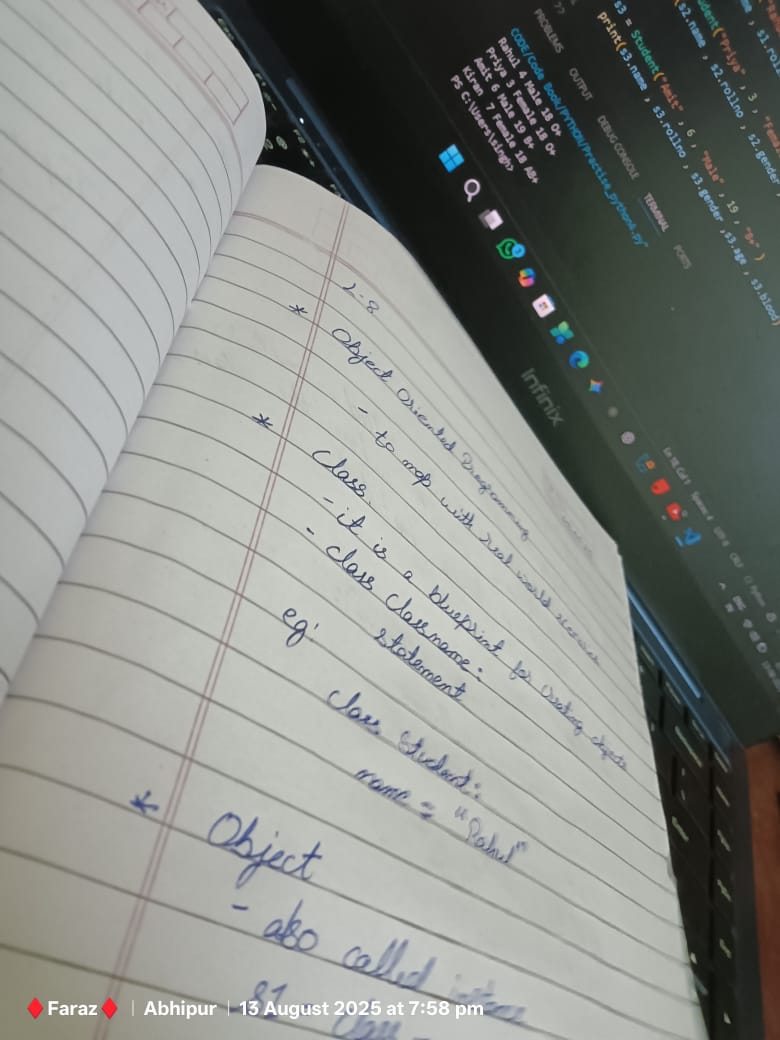 2-8
* Object Oriented Programming
- to map with real world scenario
* Class
- it is a blueprint for creating objects
- class classname:
statement
eg:
class Student:
name = "Rahul"
* Object
- also called instance
S1 = class
s3 = Student("Amit", 6, "Male", 19, "B+")
print(s3.name, s3.rollno, s3.gender, s3.age, s3.blood
PROBLEMS OUTPUT DEBUG CONSOLE TERMINAL PORTS
CODE/Code Book/PYTHON/Practise_python4.py"
Rahul 4 Male 18 O+
Priya 3 Female 18 O+
Amit 6 Male 19 B+
Kiran 7 Female 18 AB+
PS C:\Users\singh>
Infinix
♦Faraz♦ | Abhipur | 13 August 2025 at 7:58 pm